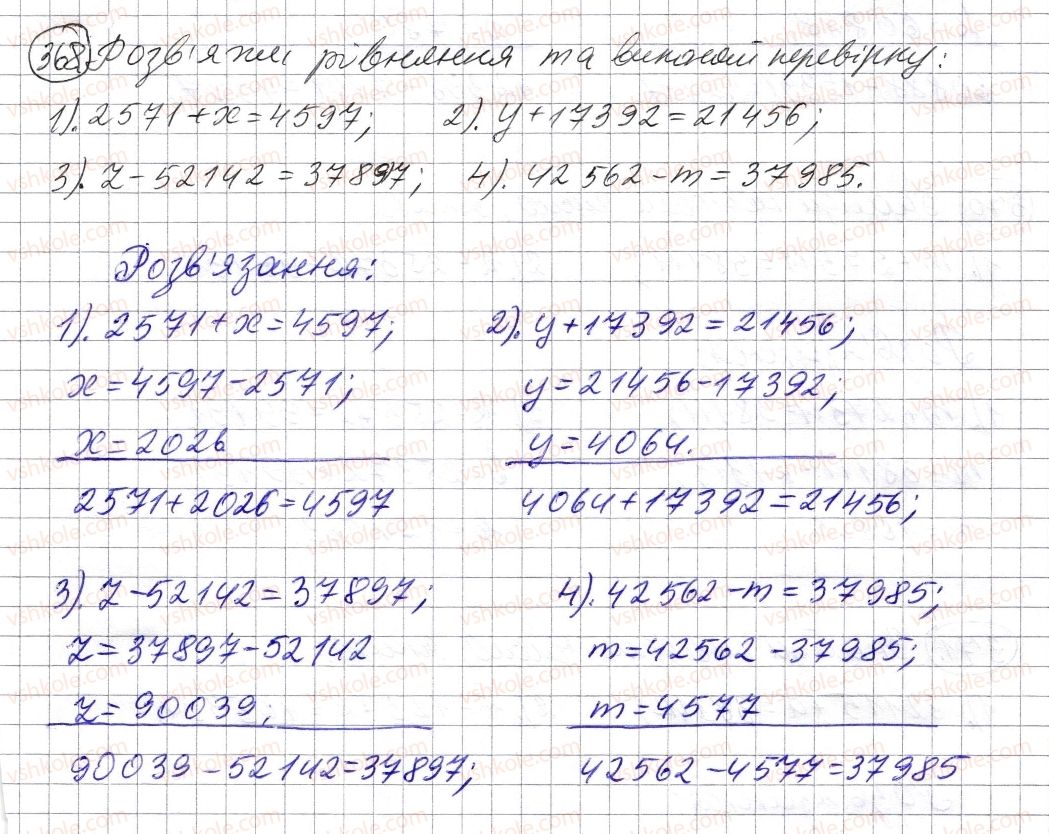 368 Розв'яжи рівняння та виконай перевірку:
1). 2571+x=4597; 2). y+17392=21456;
3). z-52142=37897; 4). 42562-m=37985.
Розв'язання:
1). 2571+x=4597; 2). y+17392=21456;
x=4597-2571; y=21456-17392;
x=2026 y=4064.
2571+2026=4597 4064+17392=21456;
3). z-52142=37897; 4). 42562-m=37985;
z=37897-52142 m=42562-37985;
z=90039; m=4577
90039-52142=37897; 42562-4577=37985